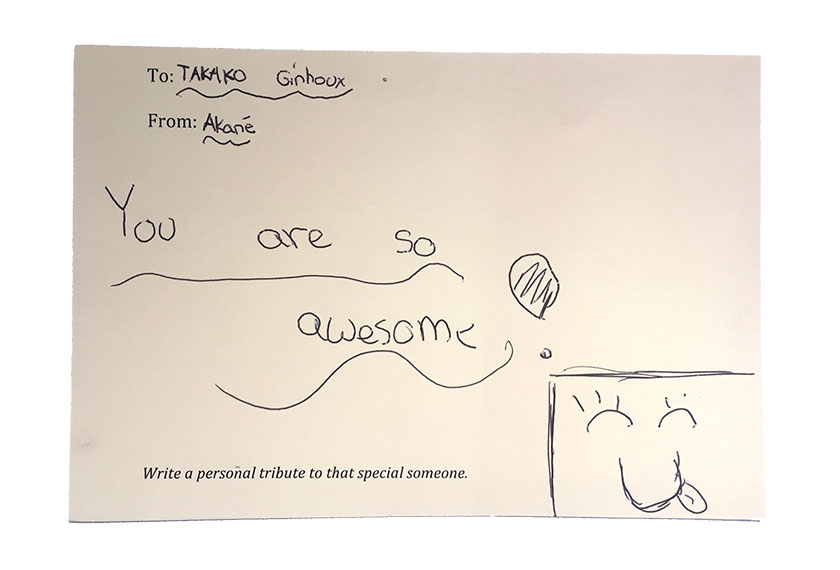 To: TAKAKO Ginhoux
From: Akané
You are so
awesome
Write a personal tribute to that special someone.